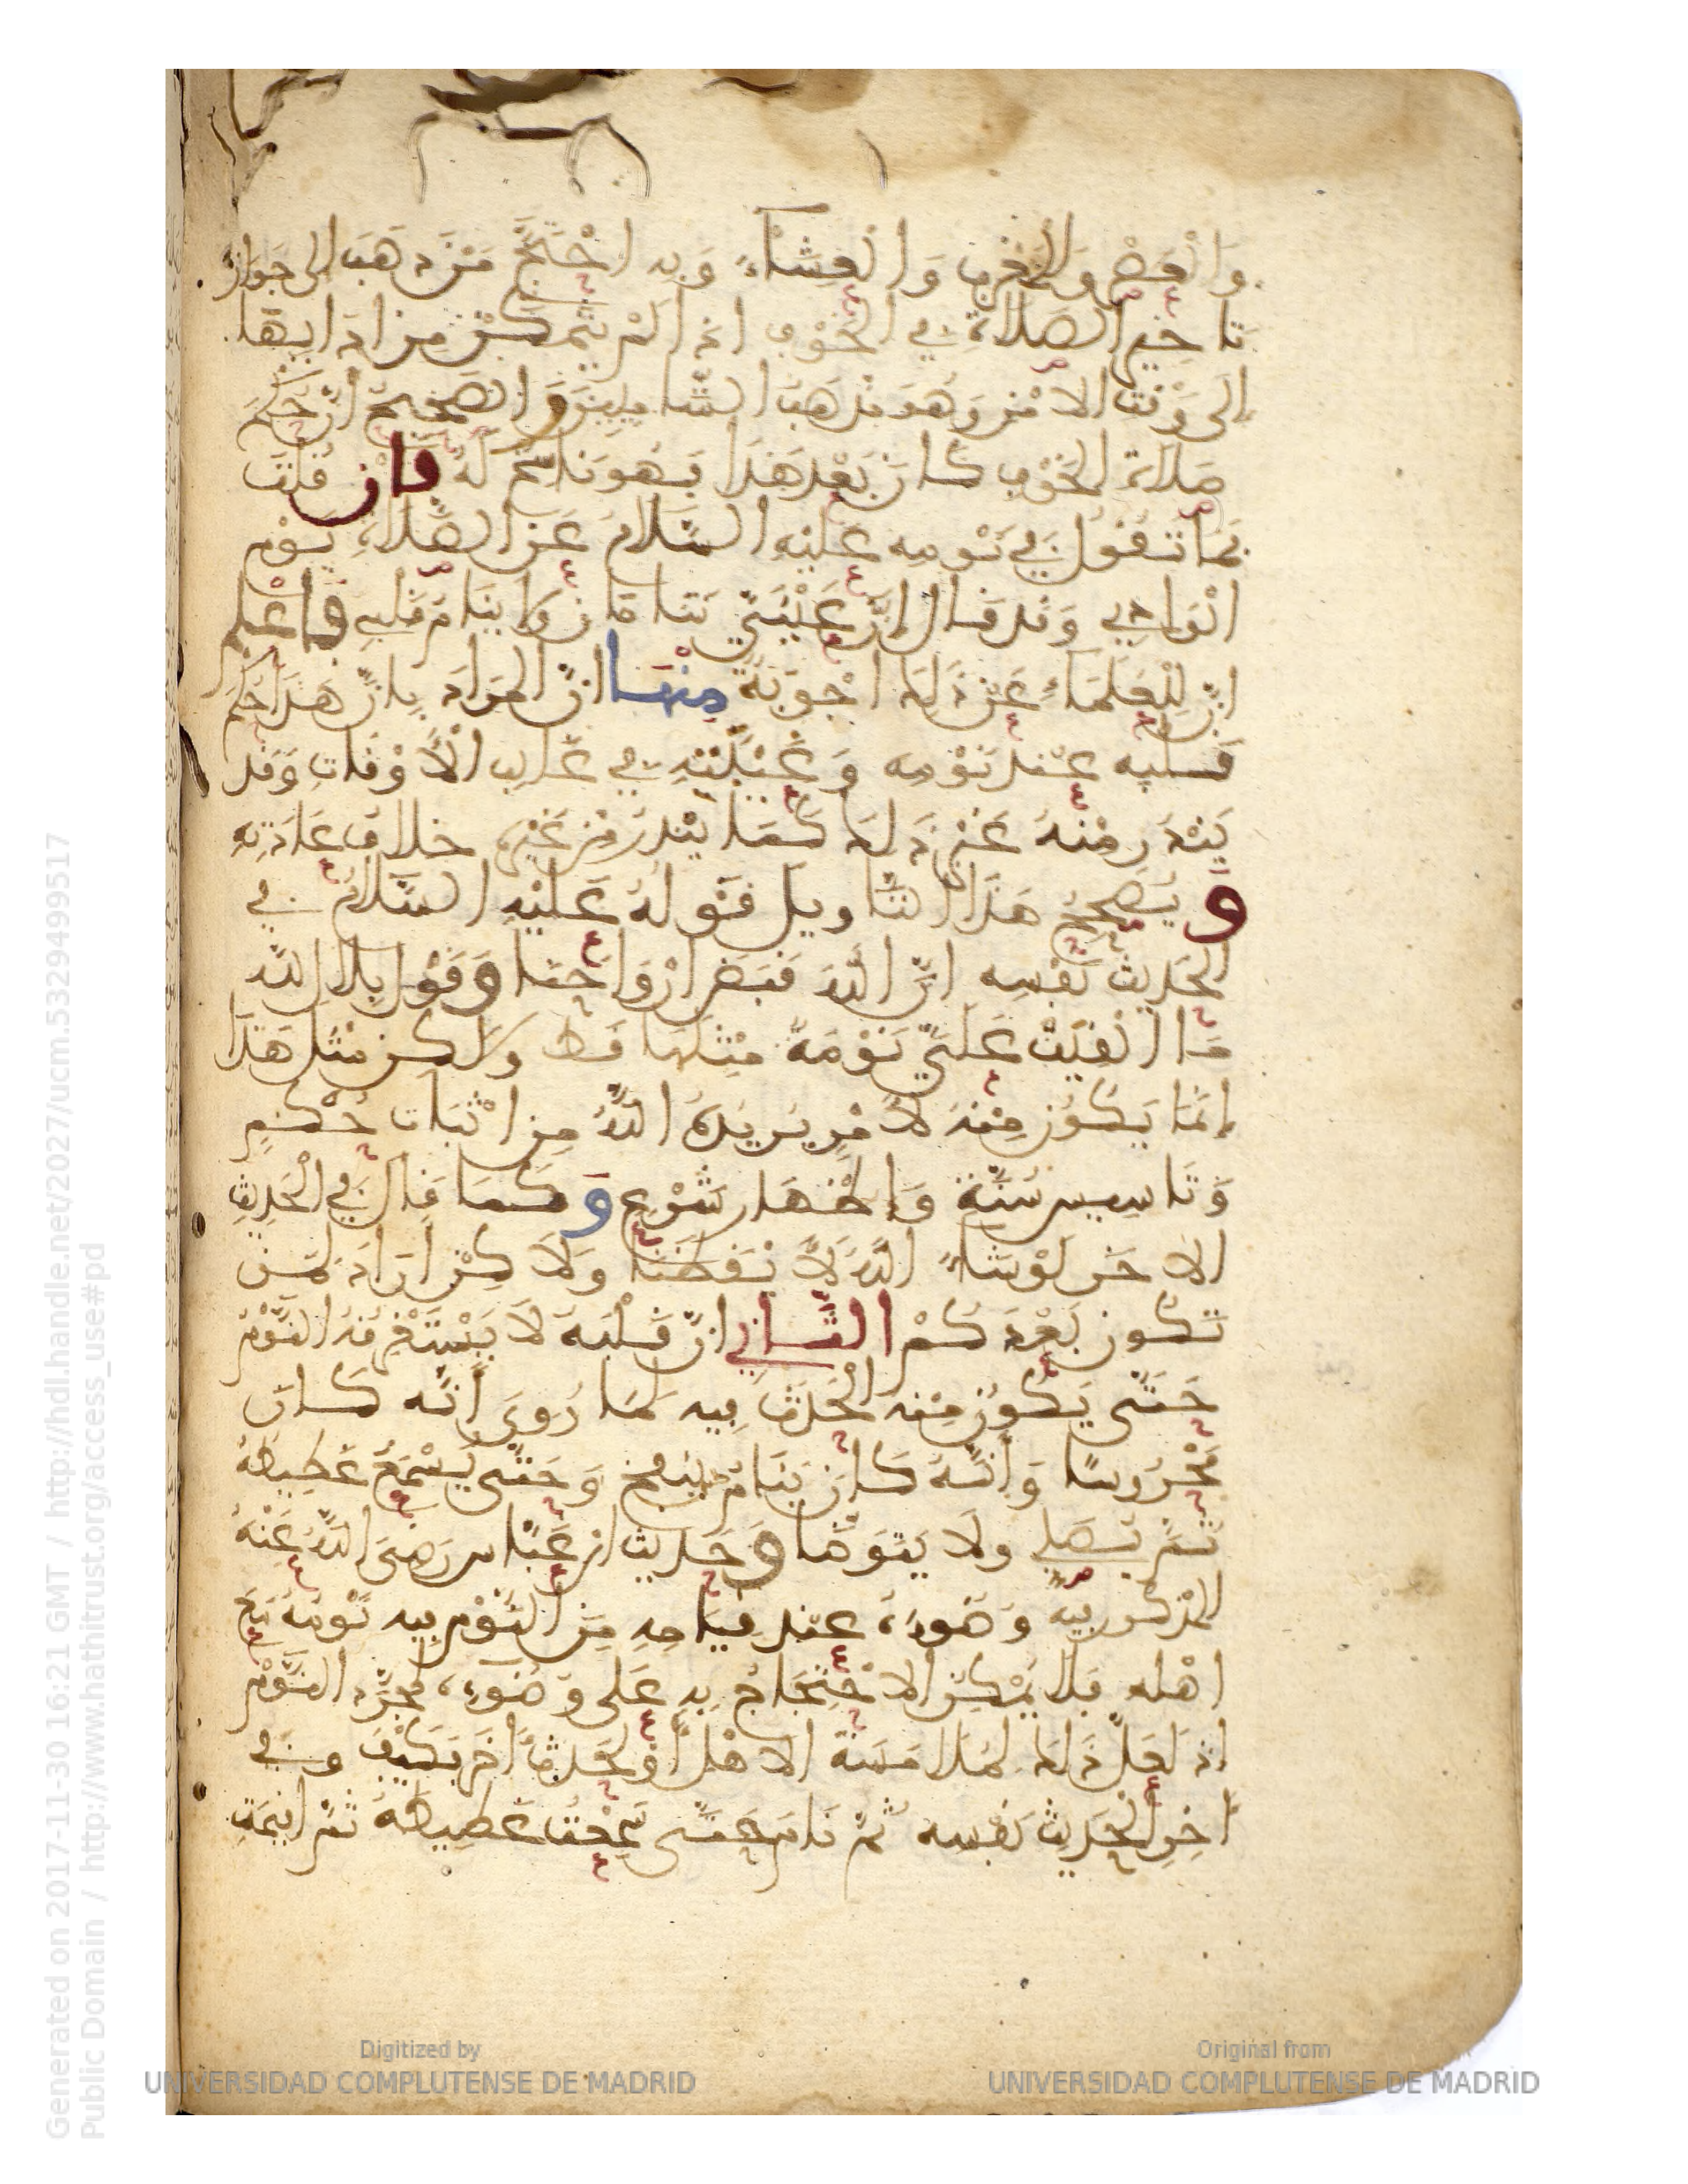 وَالْعَصْرِ وَالْمَغْرِبِ وَالْعِشَاءِ وَبِهِ احْتَجَّ مَنْ ذَهَبَ الى جَوَازِ
تَاخِيرِ الصَّلَاةِ فِي الْخَوْفِ اذَا لَمْ يَتَمَكَّنْ مِنْ ادَايِهَا
إلَى وَقْتِ الامْنِ وَهُوَ مَذْهَبُ الشَّامِيِّينَ وَالصَّحِيحُ انَّ حُكْمَ
صَلَاةِ الْخَوْفِ كَانَ بَعْدَ هَذَا فَهُوَ نَاسِخٌ لَهُ فَانْ قُلْتَ
فَمَا تَقُولُ فِي نَوْمِهِ عَلَيْهِ السَّلَامُ عَنِ الصَّلَاةِ يَوْمَ
الْوَادِي وَقَدْ قَالَ إنَّ عَيْنَيَّ تَنَامَانِ وَلَا يَنَامُ قَلْبِي فَاعْلَمْ
انَّ لِلْعُلَمَاءِ عَنْ ذَلِكَ اجْوِبَةً مِنْهَا انَّ الْمُرَادَ بِانَّ هَذَا حُكْمُ
قَلْبِهِ عِنْدَ نَوْمِهِ وَعَيْنَيْهِ فِي غَالِبِ الْاوْقَاتِ وَقَدْ
يَنْدُرُ مِنْهُ غَيْرُ ذَلِكَ كَمَا يَنْدُرُ مِنْ غَيْرِهِ خلَافُ عَادَتِهِ
وَيُصَحِّحُ هَذَا التَّاوِيلَ قَوْلُهُ عَلَيْهِ السَّلَامُ فِي
الْحَدِيثِ نَفْسِهِ انَّ اللَّهَ قَبَضَ ارْوَاحَنَا وَقَوْلُ بِلَالٍ لَهُ
مَا الْقِيَتْ عَلَيَّ نَوْمَةٌ مِثْلُهَا قَطُّ وَلَكِنْ مِثْلُ هَذَا
إنَّمَا يَكُونُ مِنْهُ لِامْرٍ يُرِيدُهُ اللَّهُ مِنِ اثْبَاتِ حُكْمٍ
وَتَاسِيسِ سُنَّةٍ وَإظْهَارِ شَرْعٍ وَكَمَا قَالَ فِي الْحَدِيثِ
الاخَرِ لَوْ شَاءَ اللَّهُ لَايْقَظَنَا وَلَاكِنْ ارَادَ لِمَنْ
تَكُونُ بَعْدَكُمْ الثَّانِي انَّ قَلْبَهُ لَا يَسْتَغْرِقُهُ النَّوْمُ
حَتَّى يَكُونَ مِنْهُ الْحَدَثُ فِيهِ لِمَا رُوِيَ أنَّه كَانَ
مَحْرُوسًا وَانَّهُ كَانَ يَنَامُ حَتَّى يَنْفُخَ وَحَتَّى يُسْمَعَ غَطِيطُهُ
ثُمَّ يُصَلِّي وَلَا يَتَوَضَّا وَحَدِيثُ ابْنِ عَبَّاسٍ رَضِيَ اللَّهُ عَنْهُ
الْمَذْكُورُ فِيهِ وَضُوءُهُ عِنْدَ قِيَامِهِ مِنَ النَّوْمِ فِيهِ نَوْمُهُ مَعَ
اهْلِهِ فَلَا يُمْكِنُ الاحْتِجَاجُ بِهِ عَلَى وُضُوءِهِ بِمُجَرَّدِ النَّوْمِ
اذْ لَعَلَّ ذَلِكَ لِمُلَامَسَةِ الاهْلِ أَوْ لِحَدَثٍ اخَرَ فَكَيْفَ وَفِي
اخِرِ الْحَدِيثِ نَفْسِهِ ثُمَّ نَامَ حَتَّى سَمِعْتُ غَطِيطَهُ ثُمَّ اقِيمَتِ
Generated on 2017-11-30 16:21 GMT / http://hdl.handle.net/2027/ucm.5329499517
Public Domain / http://www.hathitrust.org/access_use#pd
Digitized by
UNIVERSIDAD COMPLUTENSE DE MADRID
Original from
UNIVERSIDAD COMPLUTENSE DE MADRID